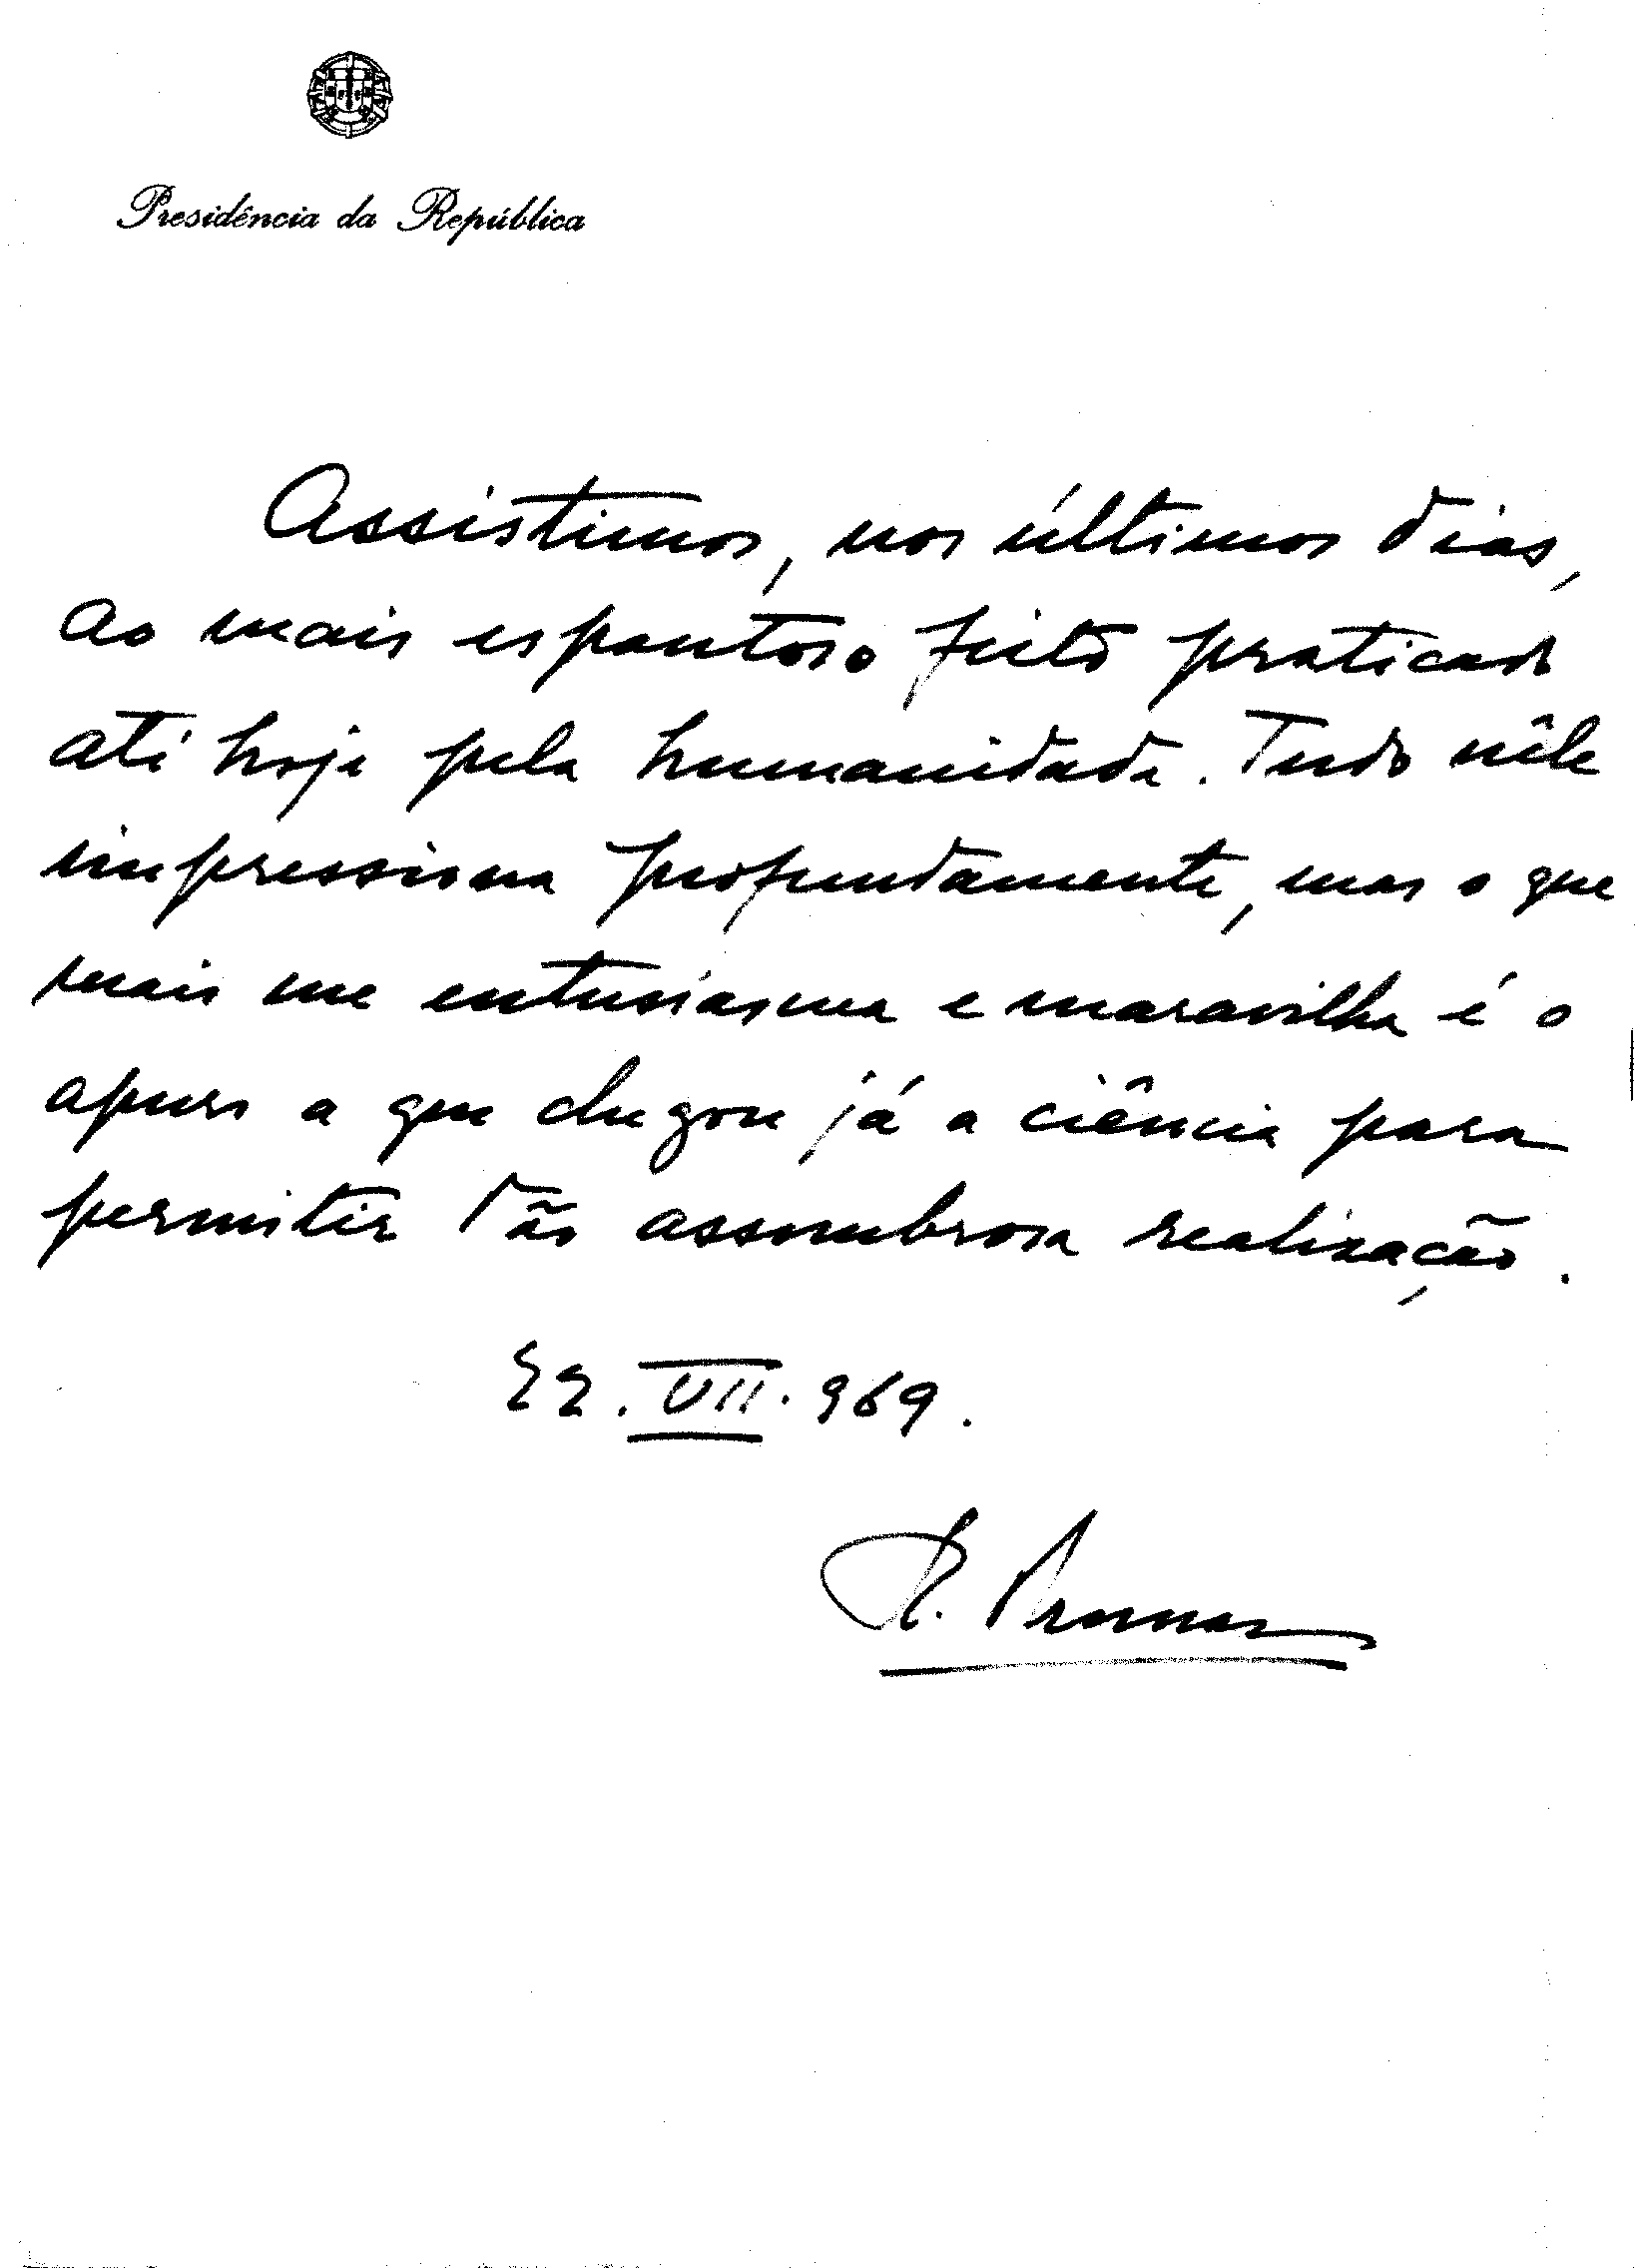 Presidência da República
Assistimos, nos últimos dias,
ao mais espantoso feito praticado
até hoje pela humanidade. Tudo nêle
impressiona profundamente, mas o que
mais me entusiasma e maravilha é o
apuro a que chegou já a ciência para
permitir tão assombrosa realização.
22.VII.969.